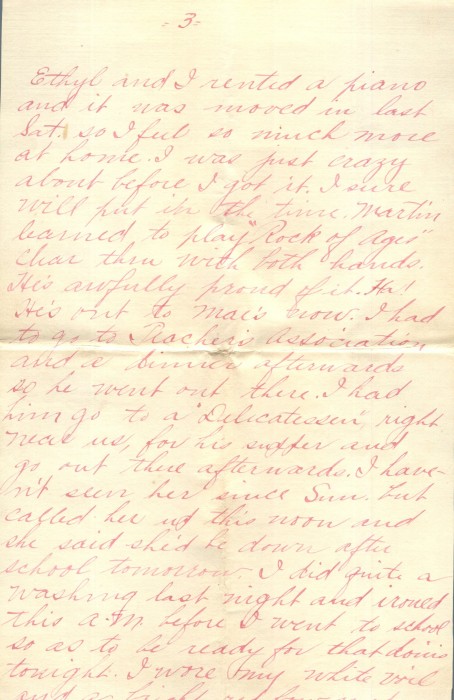 - 3 -
Ethyl and I rented a piano
and it was moved in last
Sat. so I feel so much more
at home. I was just crazy
about before I got it. I sure
will put in the time. Martin
learned to play "Rock of Ages"
clear thru with both hands.
He's awfully proud of it. Ha!
He's out to Mae's now. I had
to go to Teacher's Association
and a dinner afterwards
so he went out there. I had
him go to a "Delicatessen" right
near us, for his supper and
go out there afterwards. I have-
n't seen her since Sun. but
called her up this noon and
she said she'd be down after
school tomorrow. I did quite a
washing last night and ironed
this a.m. before I went to school
so as to be ready for that doins
tonight. I wore my white voil
and a